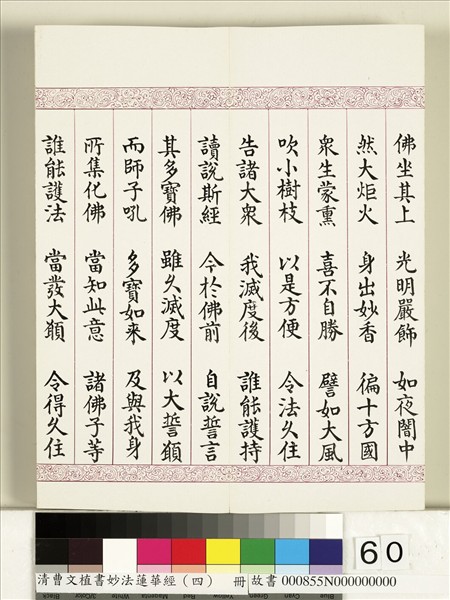 佛坐其上 光明嚴飾 如夜闇中
然大炬火 身出妙香 徧十方國
衆生蒙熏 喜不自勝 譬如大風
吹小樹枝 以是方便 令法久住
告諸大衆 我滅度後 誰能護持
讀說斯經 今於佛前 自說誓言
其多寶佛 雖久滅度 以大誓願
而師子吼 多寶如来 及與我身
所集化佛 當知此意 諸佛子等
誰能護法 當發大願 令得久住
60
清曹文植書妙法蓮華經(四) 冊 故書 000855N000000000